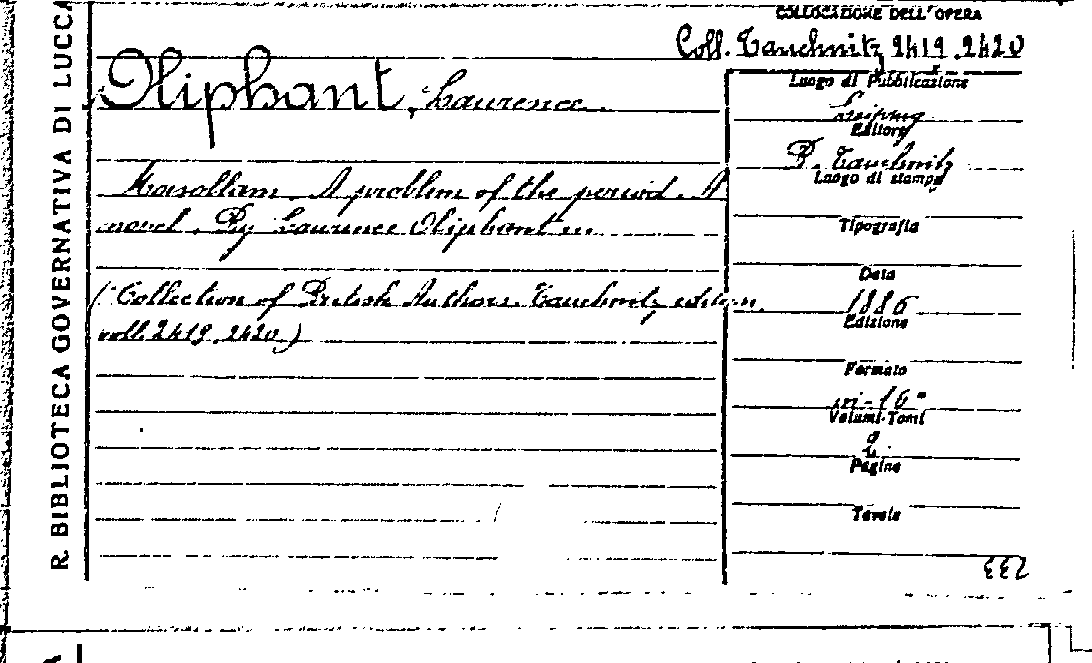 R. BIBLIOTECA GOVERNATIVA DI LUCCA
COLLOCAZIONE DELL'OPERA
Coll. Tauchnitz 2419.2420
Oliphant, Laurence
Masollam. A problem of the period. A
novel. By Laurence Oliphant
(Collection of British Authors. Tauchnitz edition.
voll. 2419.2420)
Luogo di Pubblicazione
Leipzig
Editore
B. Tauchnitz
Luogo di stampa
Tipografia
Data
1886
Edizione
Formato
in-16°
Volumi-Tomi
2
Pagine
Tavole